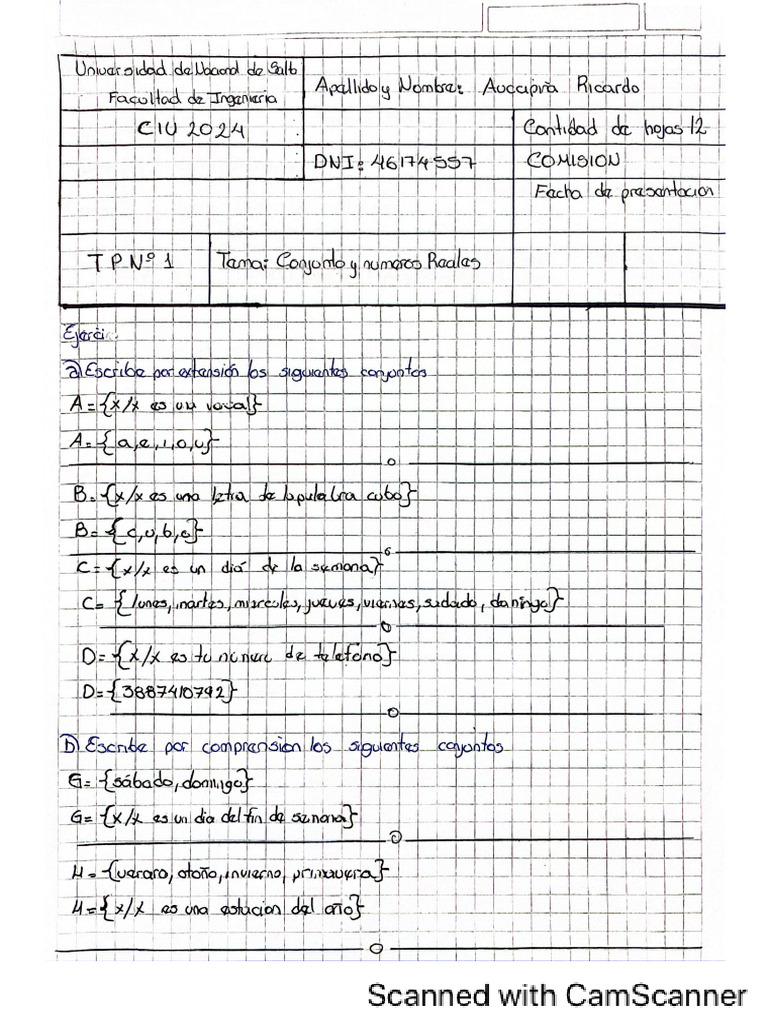 Universidad de Nacional de Salta
Facultad de Ingenieria
Apellido y Nombre: Aucapiña Ricardo
CIU 2024
Cantidad de hojas 12
DNI: 46174557
COMISION
Fecha de presentacion
T P Nº 1
Tema: Conjunto y numeros Reales
Ejerci
a) Escribe por extensión los siguientes conjuntos
A = {x/x es un vocal}
A = {a, e, i, o, u}
B = {x/x es una letra de la palabra cubo}
B = {c, u, b, o}
C = {x/x es un dia de la semana}
C = {lunes, martes, miercoles, jueves, viernes, sabado, domingo}
D = {x/x es tu número de telefono}
D = {3887410792}
b) Escribe por comprension los siguientes conjuntos
G = {sábado, domingo}
G = {x/x es un dia del fin de semana}
H = {verano, otoño, invierno, primavera}
H = {x/x es una estacion del año}
Scanned with CamScanner